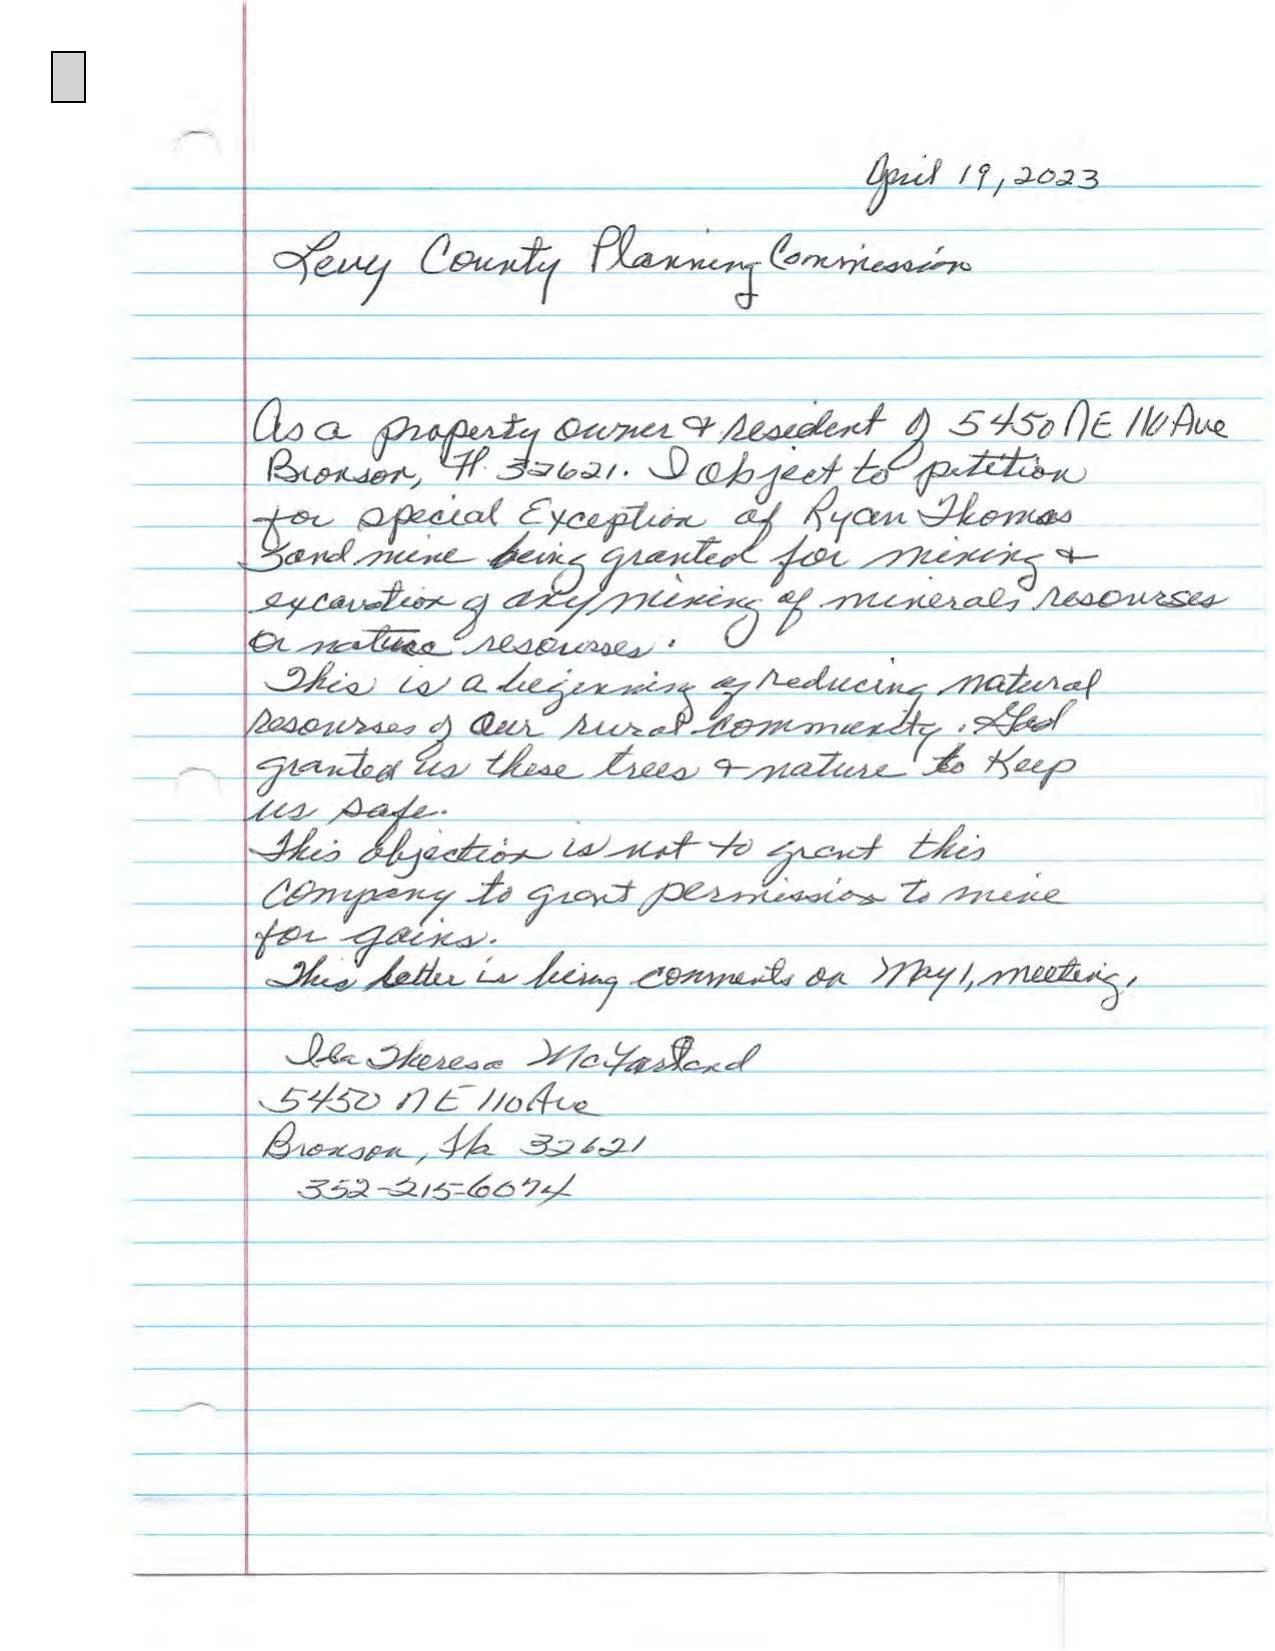 April 19, 2023
Levy County Planning Commission
As a property owner & resident of 5450 NE 110 Ave
Bronson, Fl. 32621. I object to petition
for special Exception of Ryan Thomas
Sand mine being granted for mining &
excavation of any mining of minerals resourses
or nature resourses.
This is a beginning of reducing natural
resourses of our rural community. God
granted us these trees & nature to Keep
us safe.
This objection is not to grant this
company to grant permission to mine
for gains.
This letter is being comments on May 1, meeting.
Ila Theresa McFarland
5450 NE 110 Ave
Bronson, Fla 32621
352-215-6074